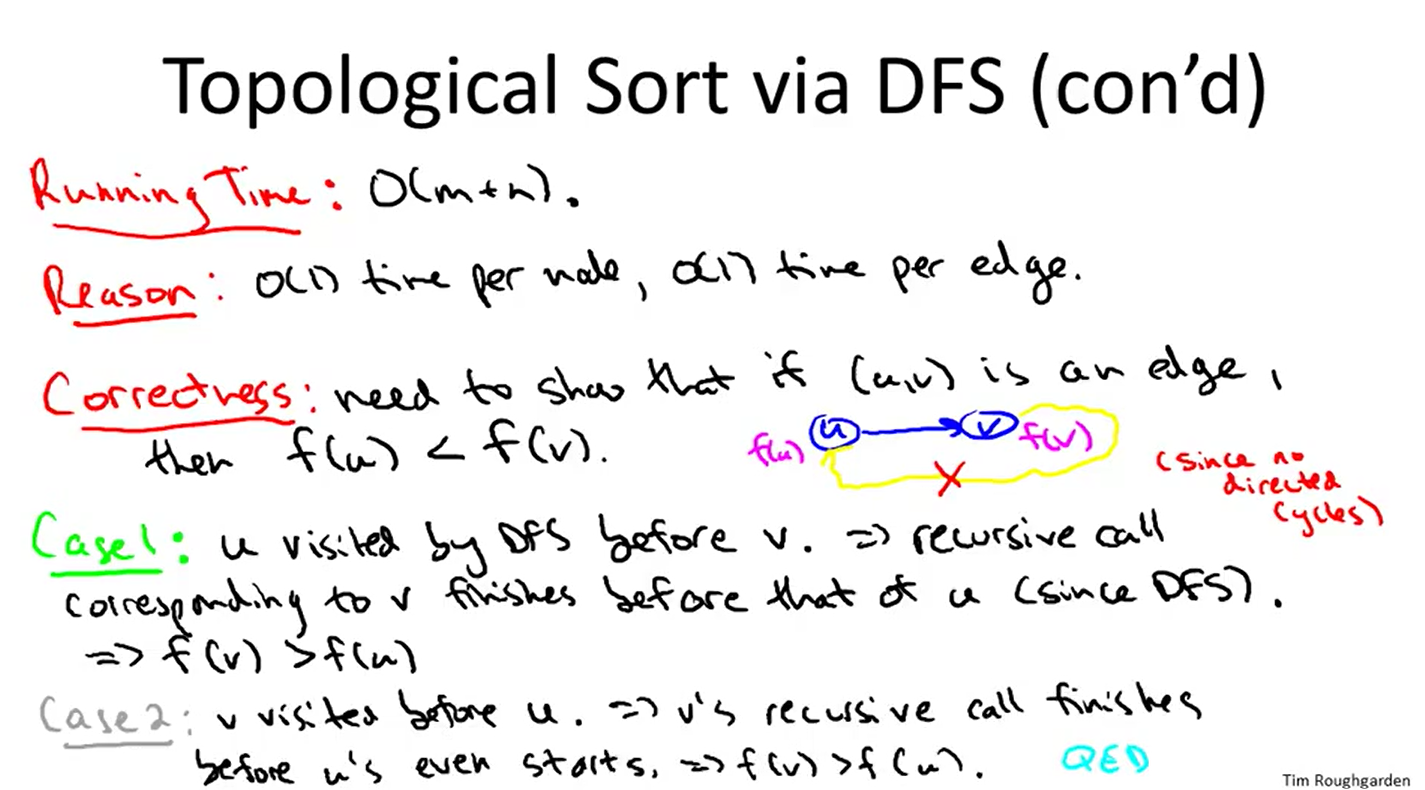 Topological Sort via DFS (con'd)
Running Time: O(m+n).
Reason: O(1) time per node, O(1) time per edge.
Correctness: need to show that if (u,v) is an edge,
then f(u) < f(v).
f(u) u v f(v)
(since no
directed
cycles)
Case 1: u visited by DFS before v. => recursive call
corresponding to v finishes before that of u (since DFS).
=> f(v) > f(u)
Case 2: v visited before u. => v's recursive call finishes
before u's even starts. => f(v) > f(u). QED
Tim Roughgarden